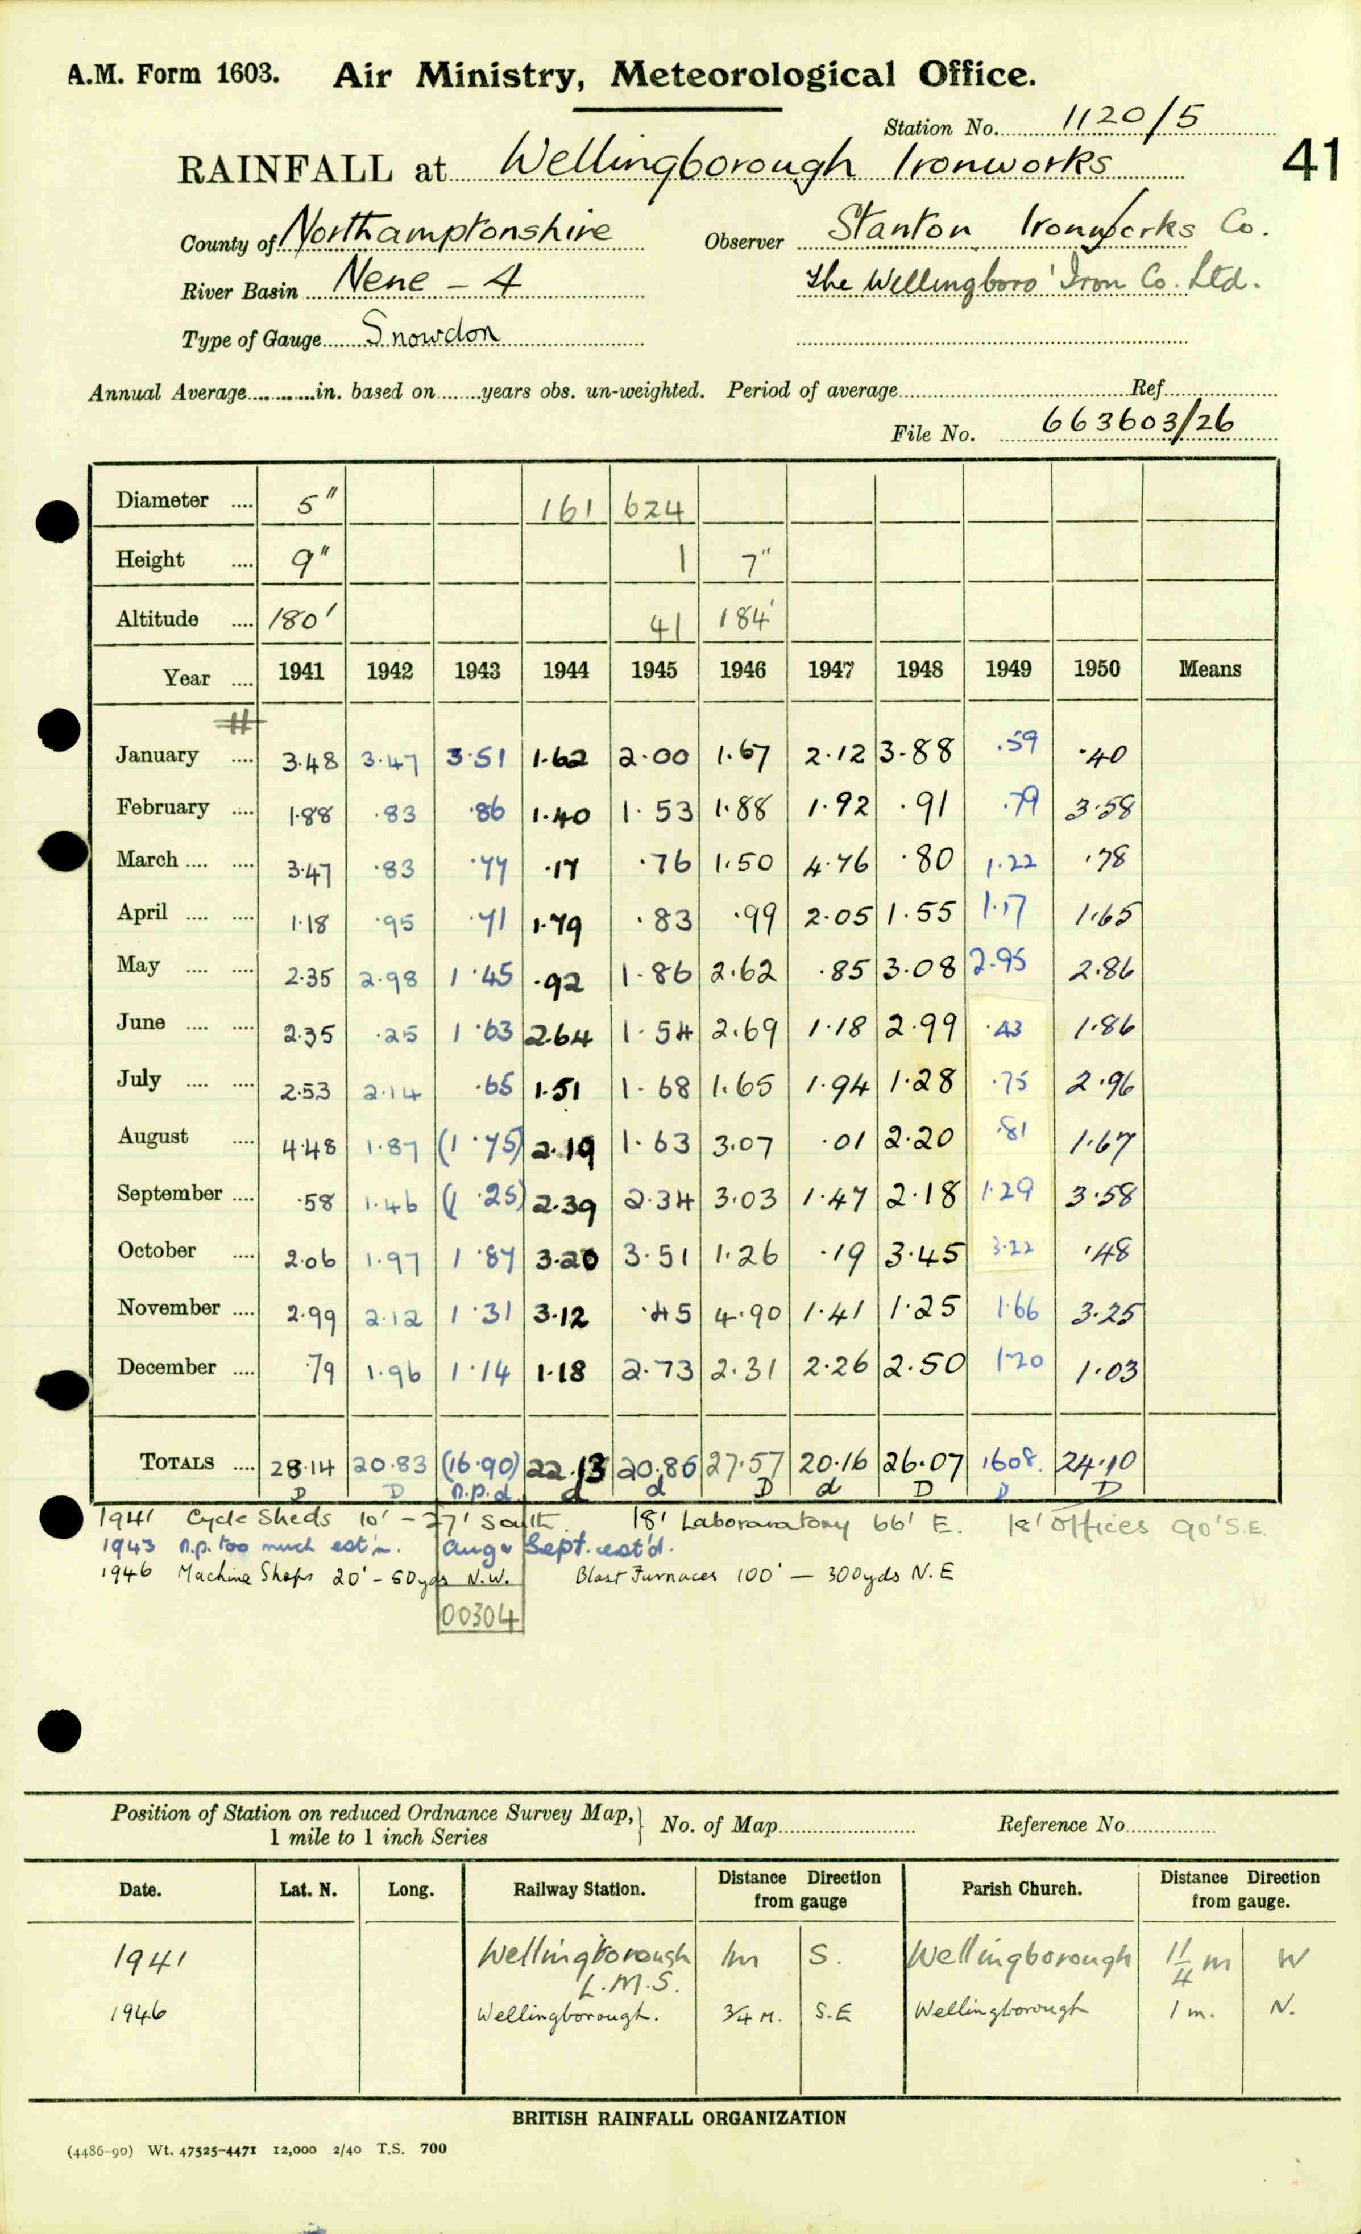 A.M. Form 1603. Air Ministry, Meteorological Office.
Station No. 1120/5
41
RAINFALL at Wellingborough Ironworks
County of Northamptonshire Observer Stanton Ironworks Co.
River Basin Nene – 4 The Wellingboro' Iron Co. Ltd.
Type of Gauge Snowdon
Annual Average............in. based on........years obs. un-weighted. Period of average........ Ref........
File No. 663603/26
Diameter .... 5" 161 624
Height .... 9" 1 7"
Altitude .... 180' 41 184'
Year .... 1941 1942 1943 1944 1945 1946 1947 1948 1949 1950 Means
January .... 3.48 3.47 3.51 1.62 2.00 1.67 2.12 3.88 .59 .40
February .... 1.88 .83 .86 1.40 1.53 1.88 1.92 .91 .79 3.58
March .... .... 3.47 .83 .77 .17 .76 1.50 4.76 .80 1.22 .78
April .... .... 1.18 .95 .71 1.79 .83 .99 2.05 1.55 1.17 1.65
May .... .... 2.35 2.98 1.45 .92 1.86 2.62 .85 3.08 2.95 2.86
June .... .... 2.35 .25 1.63 2.64 1.54 2.69 1.18 2.99 .43 1.86
July .... .... 2.53 2.14 .65 1.51 1.68 1.65 1.94 1.28 .75 2.96
August .... 4.48 1.87 (1.75) 2.19 1.63 3.07 .01 2.20 .81 1.67
September .... .58 1.46 (1.25) 2.39 2.34 3.03 1.47 2.18 1.29 3.58
October .... 2.06 1.97 1.87 3.20 3.51 1.26 .19 3.45 3.22 .48
November .... 2.99 2.12 1.31 3.12 .45 4.90 1.41 1.25 1.66 3.25
December .... .79 1.96 1.14 1.18 2.73 2.31 2.26 2.50 1.20 1.03
TOTALS .... 28.14 20.83 (16.90) 22.13 20.86 27.57 20.16 26.07 1608. 24.10
D D n.p.d. d d D d D D D
1941 Cycle Sheds 10' – 27' South. 18' Laboraratory 66' E. 18' Offices 90' S.E.
1943 n.p. too much est'n. Aug & Sept. est'd.
1946 Machine Shops 20' – 60yds N.W. Blast Furnaces 100' – 300yds N.E
00304
Position of Station on reduced Ordnance Survey Map, No. of Map........ Reference No........
1 mile to 1 inch Series
Date. Lat. N. Long. Railway Station. Distance Direction from gauge Parish Church. Distance Direction from gauge.
1941 Wellingborough L.M.S. 1m S. Wellingborough 1 1/4 m W
1946 Wellingborough. 3/4 M. S.E Wellingborough 1 m. N.
BRITISH RAINFALL ORGANIZATION
(4486-90) Wt. 47525-4471 12,000 2/40 T.S. 700